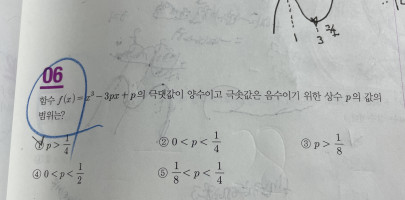 1 3
06
함수 f(x)=x³-3px+p의 극댓값이 양수이고 극솟값은 음수이기 위한 상수 p의 값의
범위는?
① p>1/4 ② 0<p<1/4 ③ p>1/8
④ 0<p<1/2 ⑤ 1/8<p<1/4